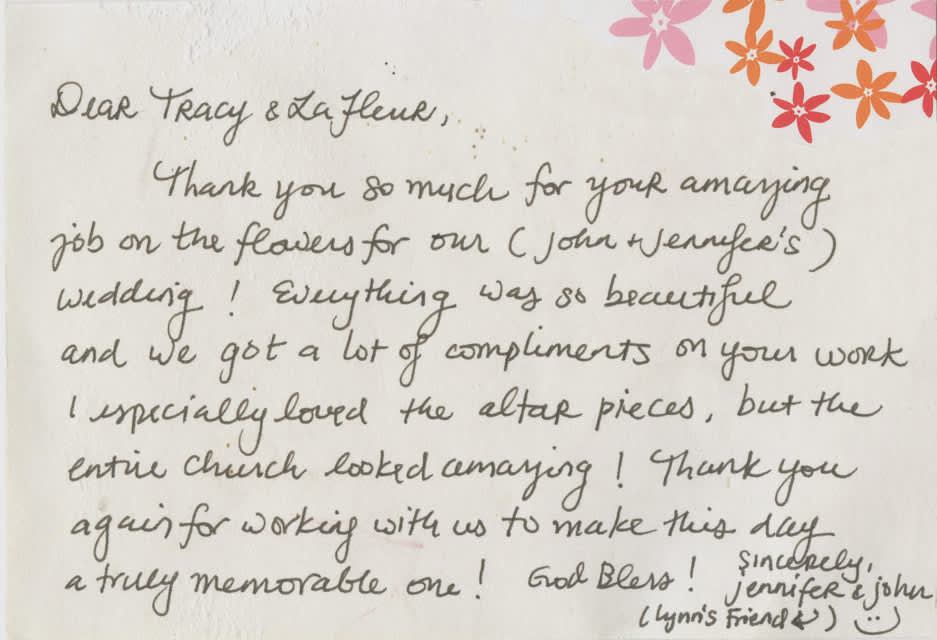 Dear Tracy & La Fleur,
Thank you so much for your amazing
job on the flowers for our (John + Jennifer's)
wedding! Everything was so beautiful
and we got a lot of compliments on your work
I especially loved the altar pieces, but the
entire church looked amazing! Thank you
again for working with us to make this day
a truly memorable one! God Bless! Sincerely,
Jennifer & John
(Lynn's Friend)